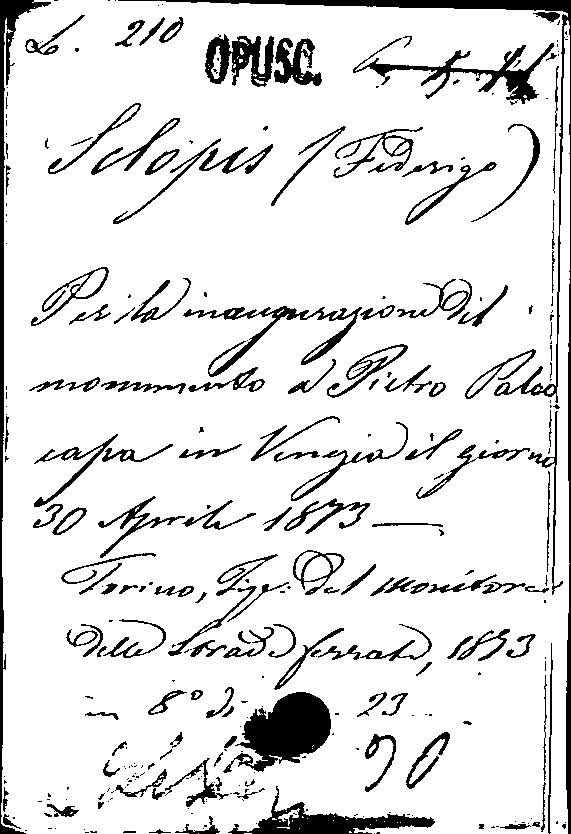 L. 210
OPUSC.
Sclopis (Federigo)
Per la inaugurazione del
monumento a Pietro Paleo
capa in Venezia il giorno
30 Aprile 1873 —
Torino, Tip: del monitore
delle Strade ferrate, 1873
in 8º di 23
90